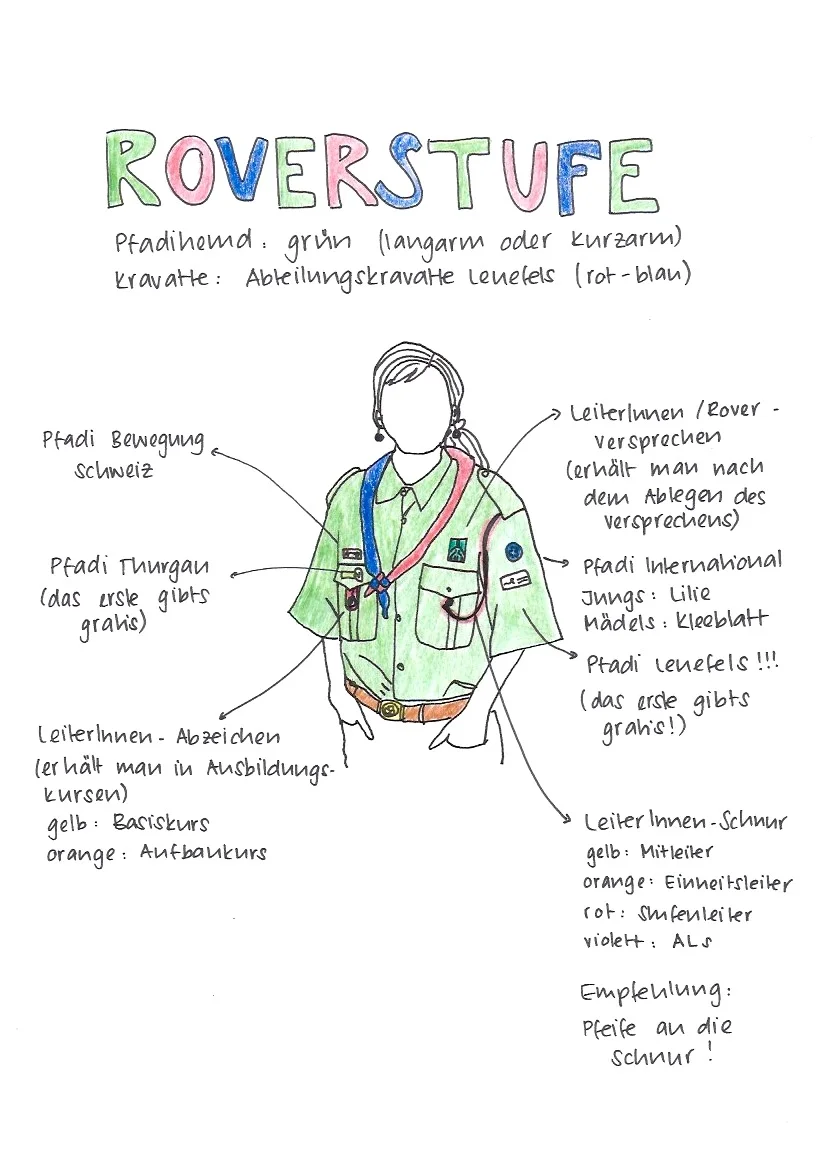 ROVERSTUFE
Pfadihemd: grün (langarm oder kurzarm)
Kravatte: Abteilungskravatte Leuefels (rot-blau)
Pfadi Bewegung
Schweiz
Pfadi Thurgau
(das erste gibts
gratis)
LeiterInnen-Abzeichen
(erhält man in Ausbildungs-
kursen)
gelb: Basiskurs
orange: Aufbaukurs
LeiterInnen/Rover-
versprechen
(erhält man nach
dem Ablegen des
Versprechens)
Pfadi International
Jungs: Lilie
Mädels: Kleeblatt
Pfadi Leuefels!!!
(das erste gibts
gratis!)
LeiterInnen-Schnur
gelb: Mitleiter
orange: Einheitsleiter
rot: Stufenleiter
violett: ALs
Empfehlung:
Pfeife an die
Schnur!